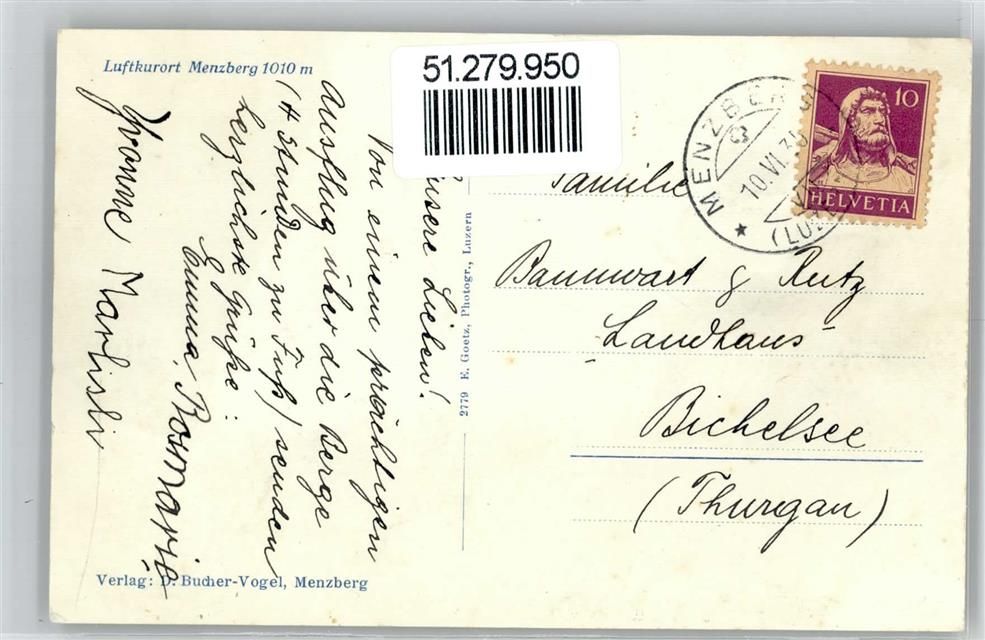 Luftkurort Menzberg 1010 m
51.279.950
MENZBERG
10.VI.30
(LUZERN)
10
HELVETIA
Unsere Lieben!
Von einem prächtigen
Ausflug über die Berge
(4 Stunden zu Fuß) senden
herzlichste Grüße:
Emma, Rosmarie
Yvonne Marlisli
2779 E. Goetz, Photogr., Luzern
Familie
Bannwart & Rutz
"Landhaus"
Bichelsee
(Thurgau)
Verlag: D. Bucher-Vogel, Menzberg